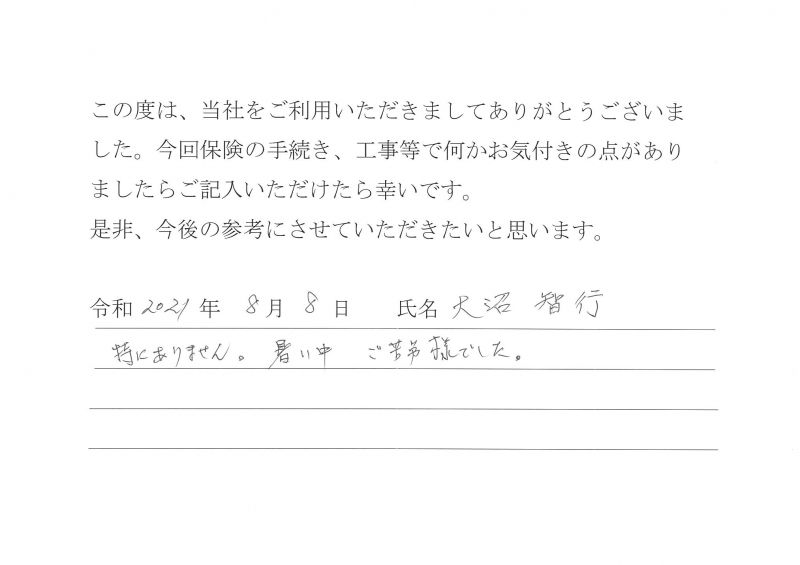 この度は、当社をご利用いただきましてありがとうございま
した。今回保険の手続き、工事等で何かお気付きの点があり
ましたらご記入いただけたら幸いです。
是非、今後の参考にさせていただきたいと思います。
令和 2021 年 8 月 8 日 氏名 大沼 智行
特にありません。暑い中 ご苦労様でした。